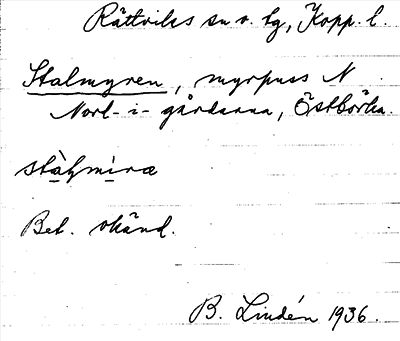 Rättviks sn o. tg, Kopp. l.
Stalmyren, myrpuss N
Nord-i-gårdarna, Östbörka.
stàlmìræ
Bet. okänd.
B. Lindén 1936.